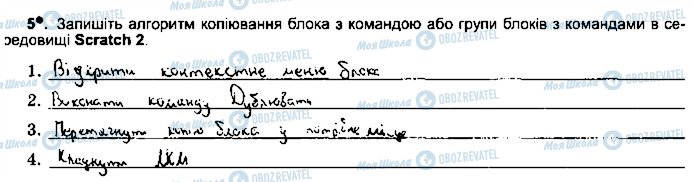 5•. Запишіть алгоритм копіювання блока з командою або групи блоків з командами в се-
редовищі Scratch 2.
1. Відкрити контекстне меню блока
2. Виконати команду Дублювати
3. Перетягнути копію блока у потрібне місце
4. Клацнути ЛКМ